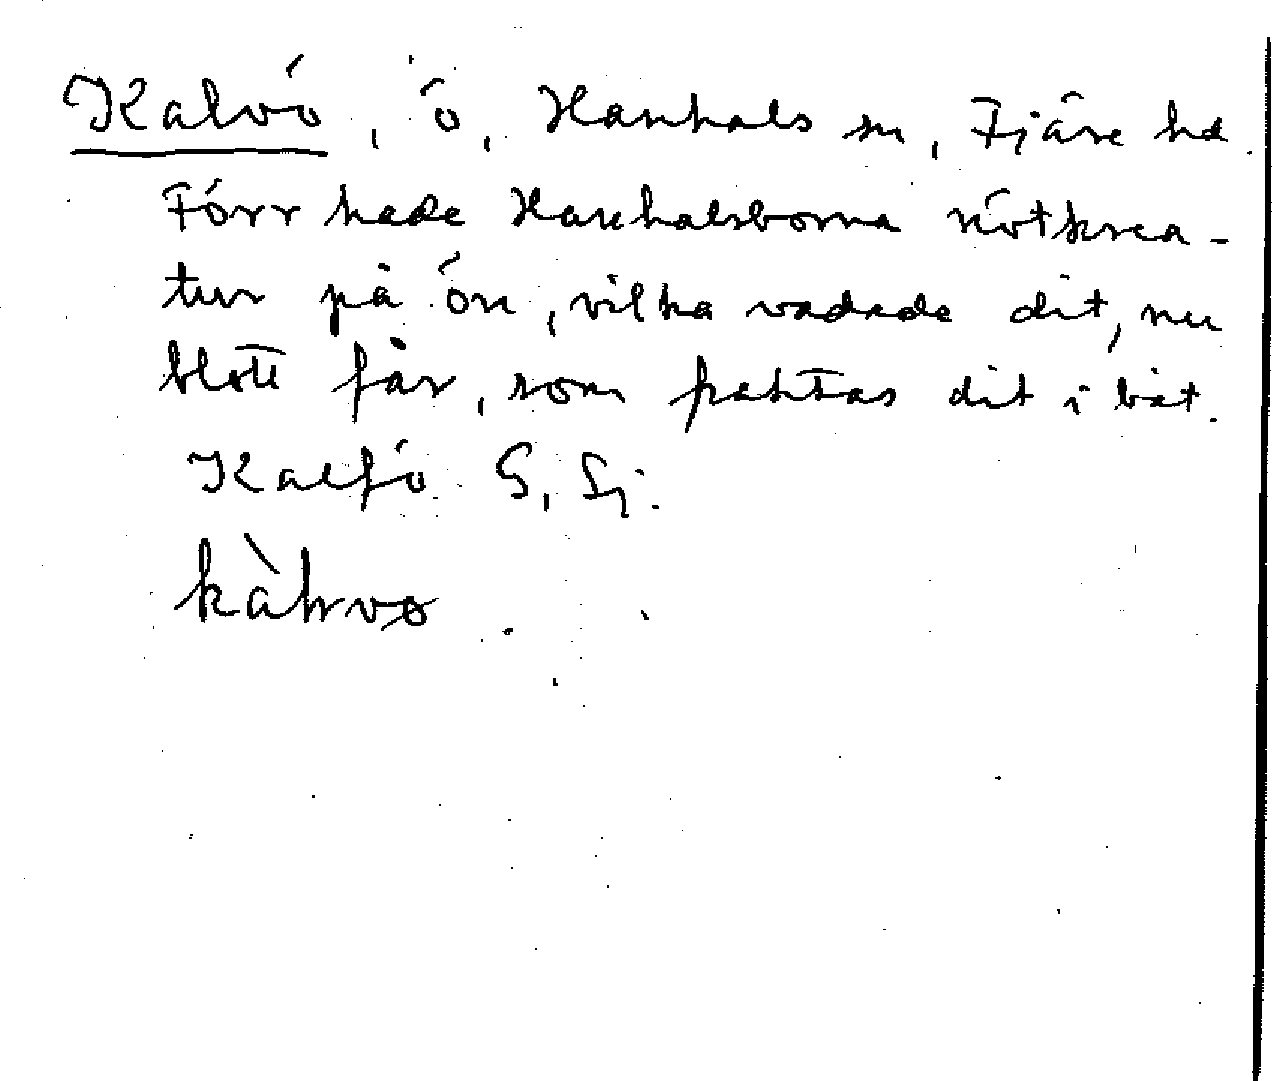 Kalvö, ö, Hanhals sn, Fjäre hd.
Förr hade Hanhalsborna nötkrea-
tur på ön, vilka vadade dit, nu
blott får, som fraktas dit i båt.
Kalfö G, Sj.
kàhvø